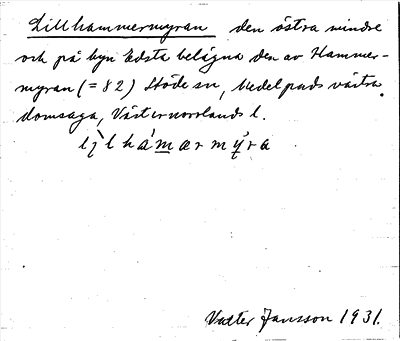 Lillhammermyran den östra mindre
och på byn Edsta belägna den av Hammer-
myran (= 82) Stöde sn, Medelpads västra
domsaga, Västernorrlands l.
Valter Jansson 1931.